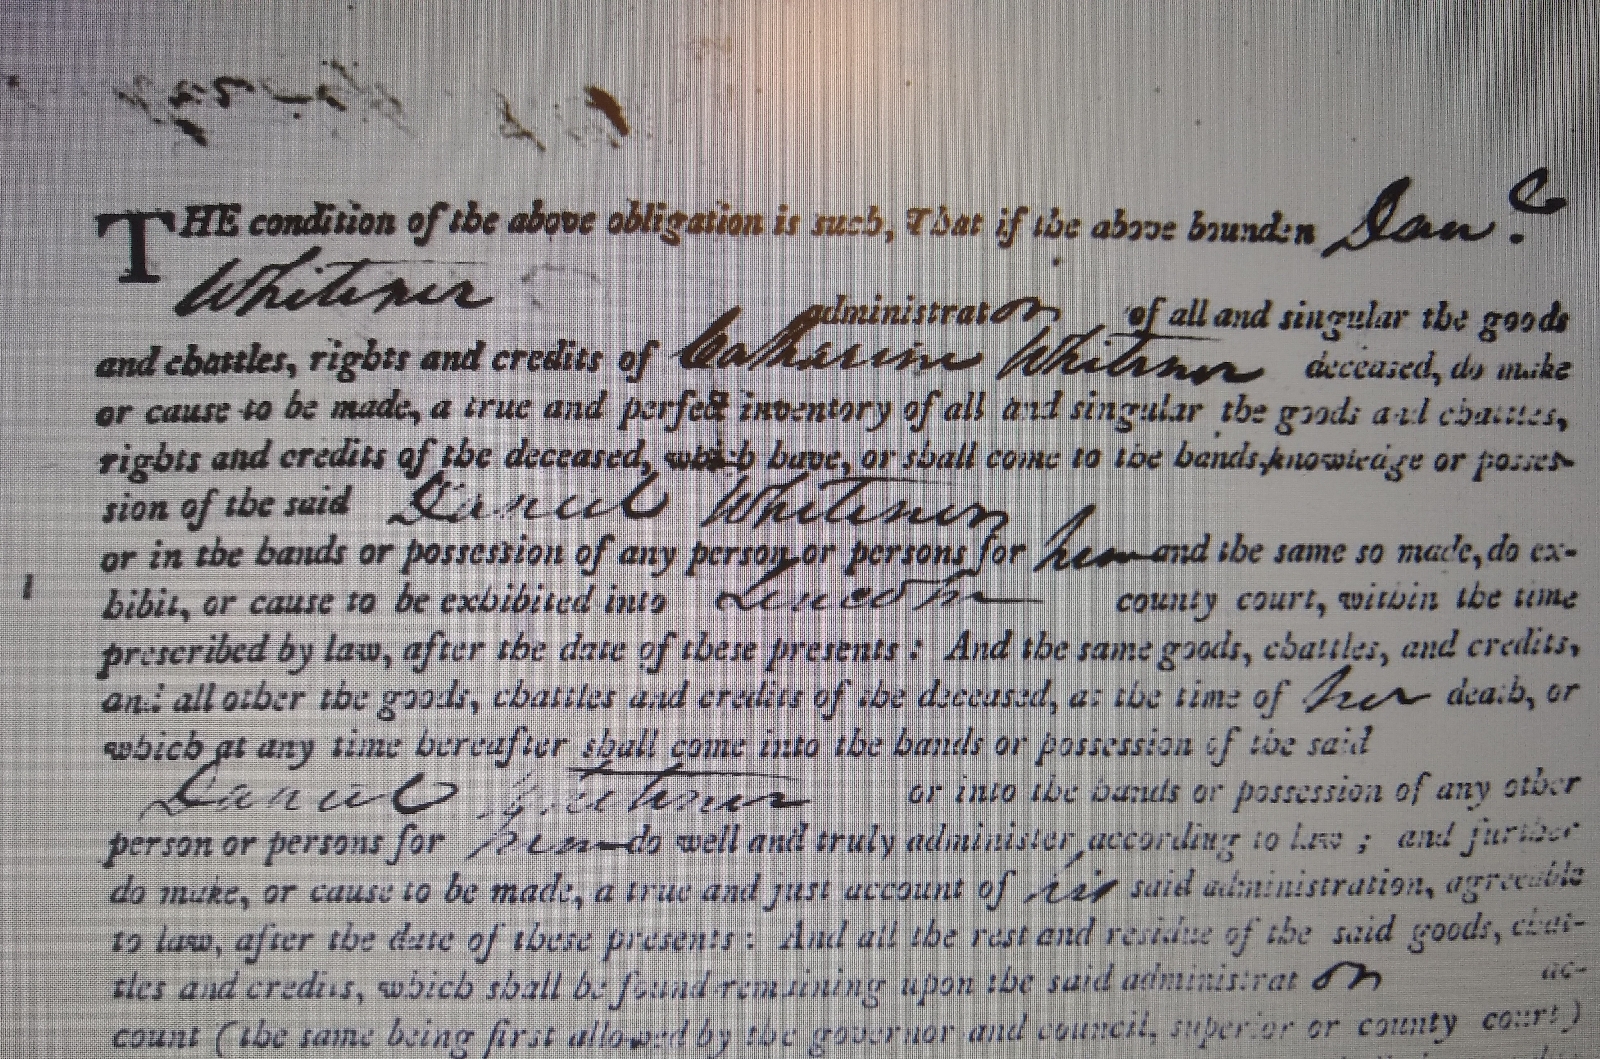 THE condition of the above obligation is such, That if the above bounden Danl.
Whitener
administrator of all and singular the goods
and chattles, rights and credits of Catharine Whitener deceased, do make
or cause to be made, a true and perfect inventory of all and singular the goods and chattles,
rights and credits of the deceased, which have, or shall come to the hands, knowledge or posses-
sion of the said Daniel Whitener
or in the hands or possession of any person or persons for him and the same so made, do ex-
hibit, or cause to be exhibited into Lincoln county court, within the time
prescribed by law, after the date of these presents: And the same goods, chattles, and credits,
and all other the goods, chattles and credits of the deceased, at the time of her death, or
which at any time hereafter shall come into the hands or possession of the said
Daniel Whitener or into the hands or possession of any other
person or persons for him do well and truly administer, according to law; and further
do make, or cause to be made, a true and just account of his said administration, agreeable
to law, after the date of these presents: And all the rest and residue of the said goods, chat-
tles and credits, which shall be found remaining upon the said administrator ac-
count (the same being first allowed by the governor and council, superior or county court)